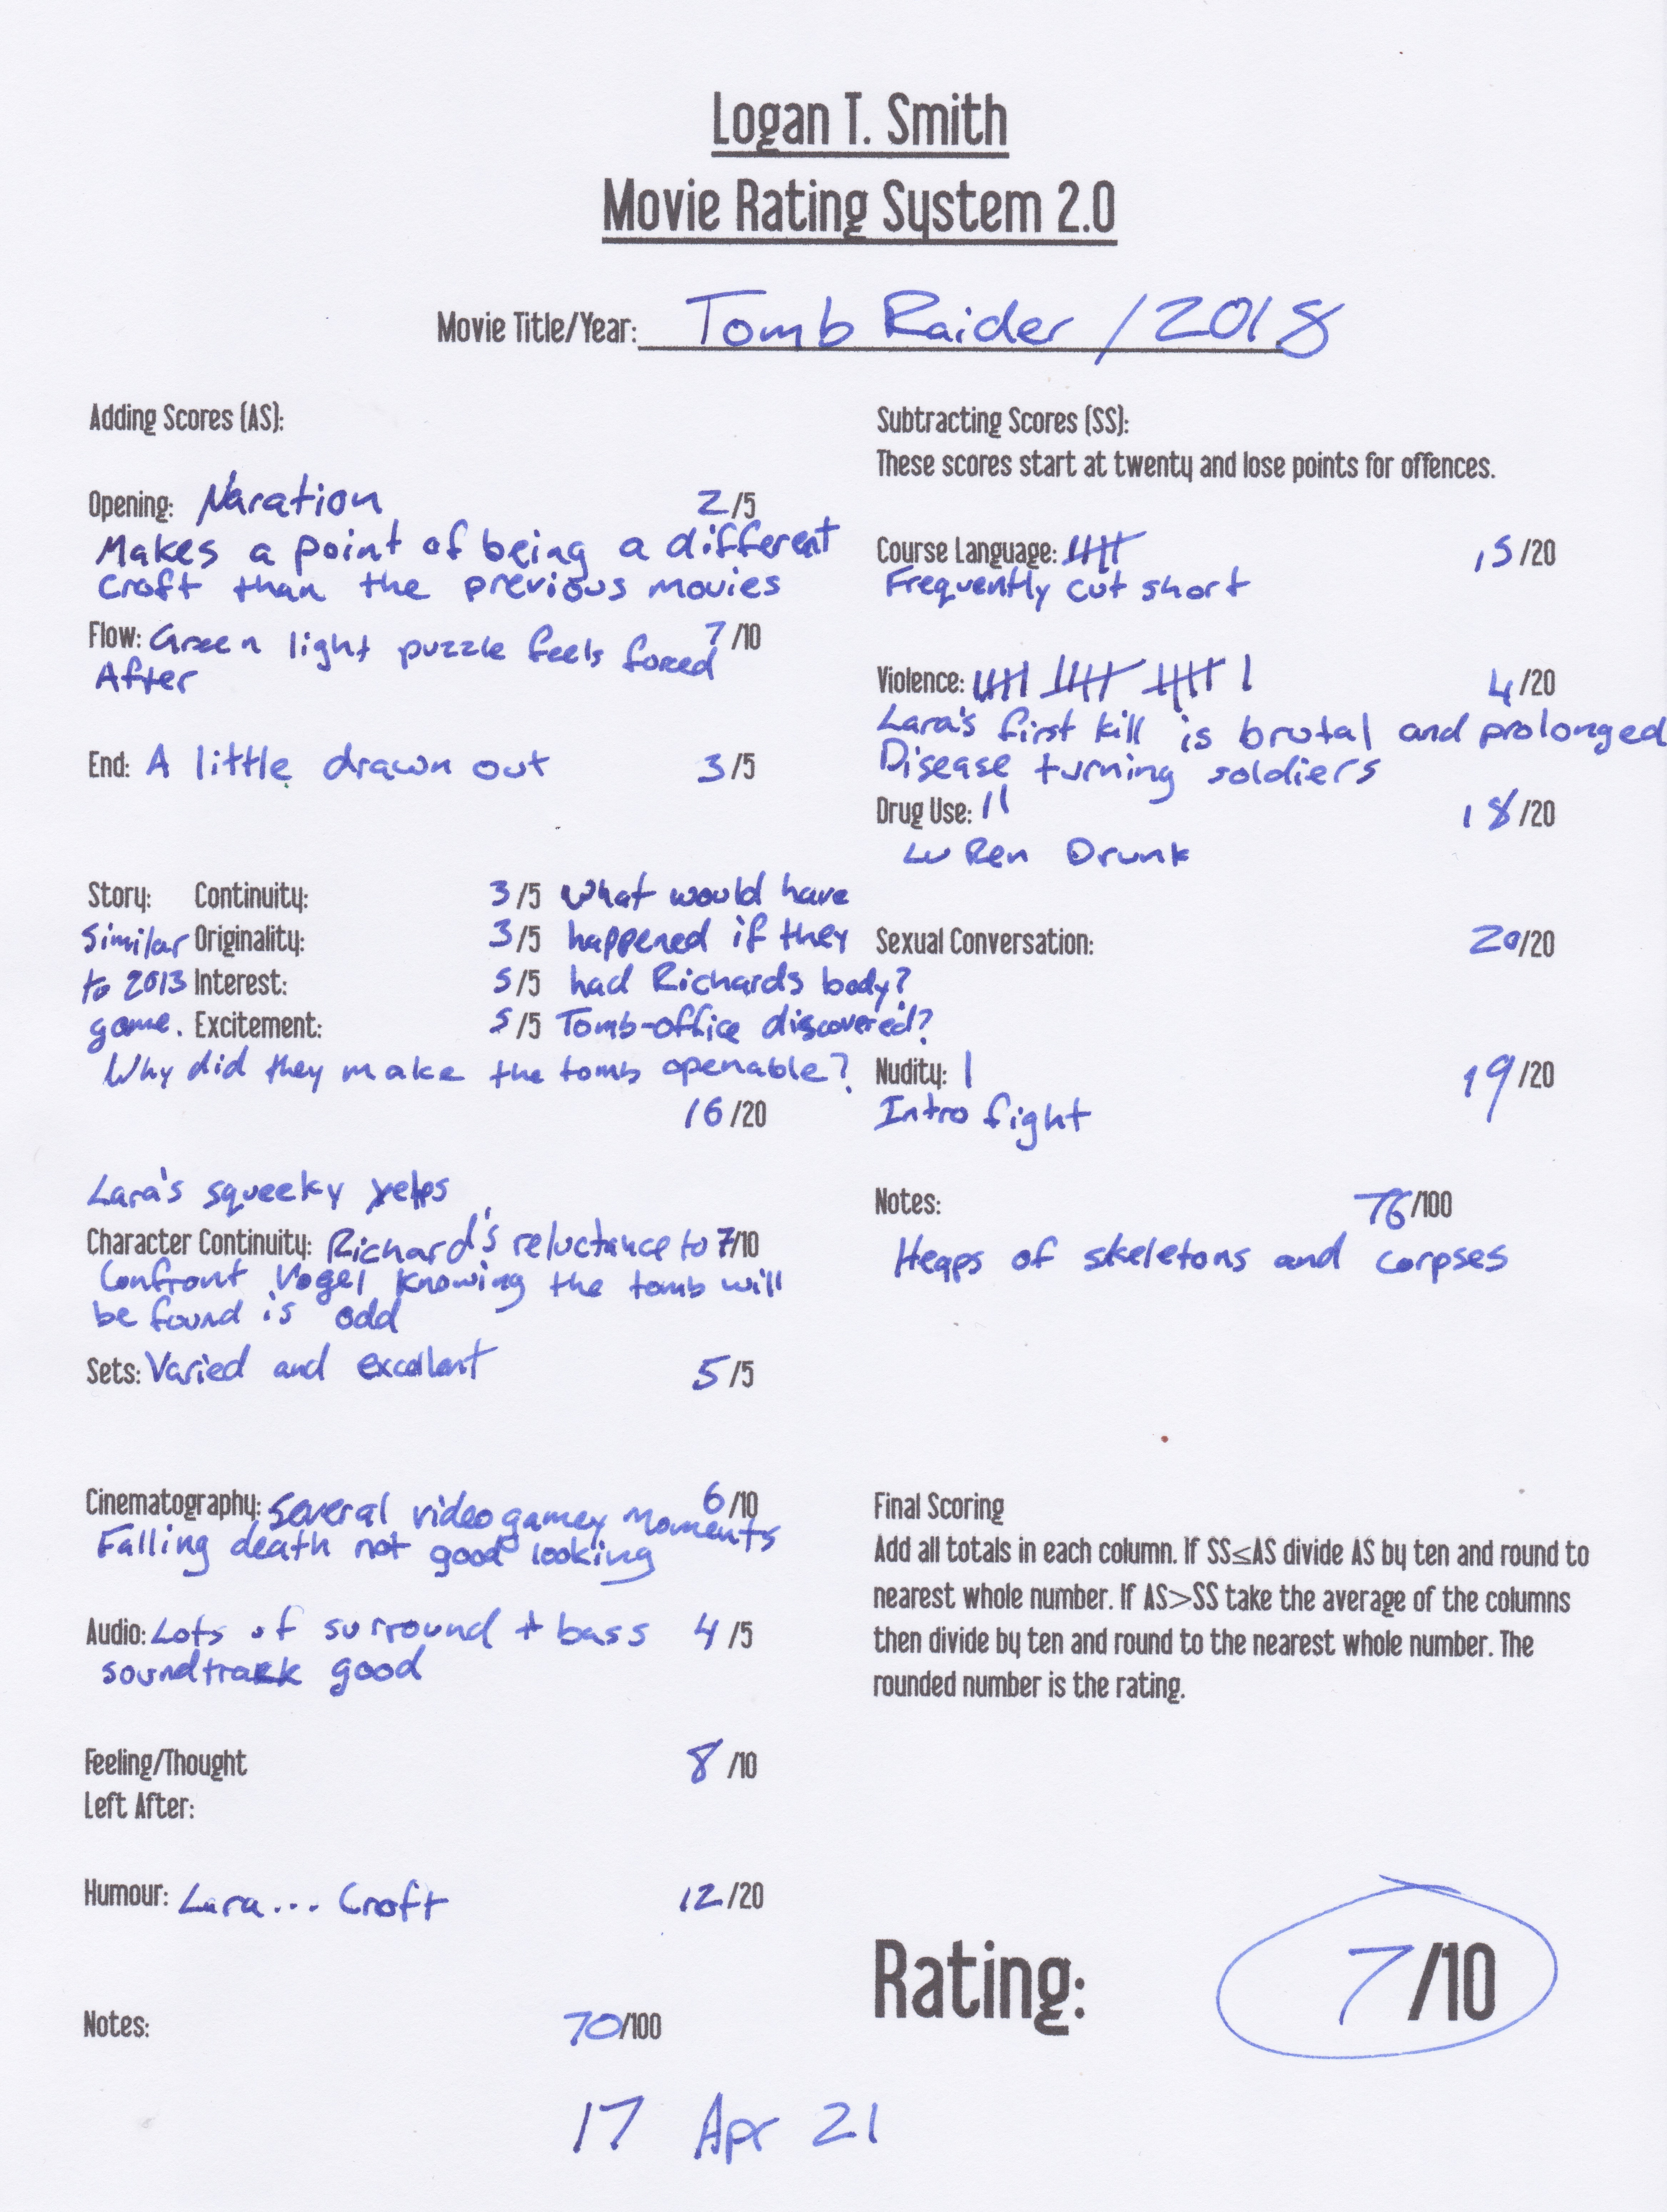 Logan T. Smith
Movie Rating System 2.0
Movie Title/Year: Tomb Raider / 2018
Adding Scores (AS):
Opening: Naration 2/5
Makes a point of being a different
Croft than the previous movies
Flow: Green light puzzle feels forced 7/10
After
End: A little drawn out 3/5
Story: Continuity: 3/5 What would have
Similar Originality: 3/5 happened if they
to 2013 Interest: 5/5 had Richards body?
game. Excitement: 5/5 Tomb-office discovered?
Why did they make the tomb openable?
16/20
Lara's squeeky yelps
Character Continuity: Richard's reluctance to 7/10
Confront Vogel knowing the tomb will
be found is odd
Sets: Varied and excellent 5/5
Cinematography: Several videogamey moments 6/10
Falling death not good looking
Audio: Lots of surround + bass 4/5
soundtrack good
Feeling/Thought 8/10
Left After:
Humour: Lara... Croft 12/20
Notes: 70/100
17 Apr 21
Subtracting Scores (SS):
These scores start at twenty and lose points for offences.
Course Language: 15/20
Frequently cut short
Violence: 4/20
Lara's first kill is brutal and prolonged
Disease turning soldiers
Drug Use: 18/20
Lu Ren Drunk
Sexual Conversation: 20/20
Nudity: 19/20
Intro fight
Notes: 76/100
Heaps of skeletons and corpses
Final Scoring
Add all totals in each column. If SS≤AS divide AS by ten and round to
nearest whole number. If AS>SS take the average of the columns
then divide by ten and round to the nearest whole number. The
rounded number is the rating.
Rating: 7/10